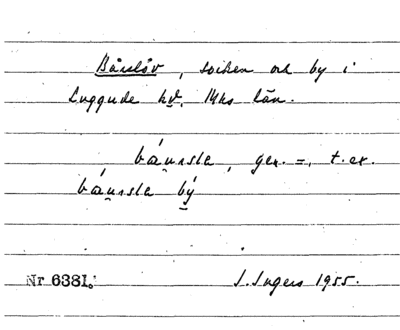 Bårslöv, socken och by i
Luggude hd. Mhs län.
båu̯rsla, gen. =, t. ex.
båu̯rsla by
Nr 6381.
I. Ingers 1955.